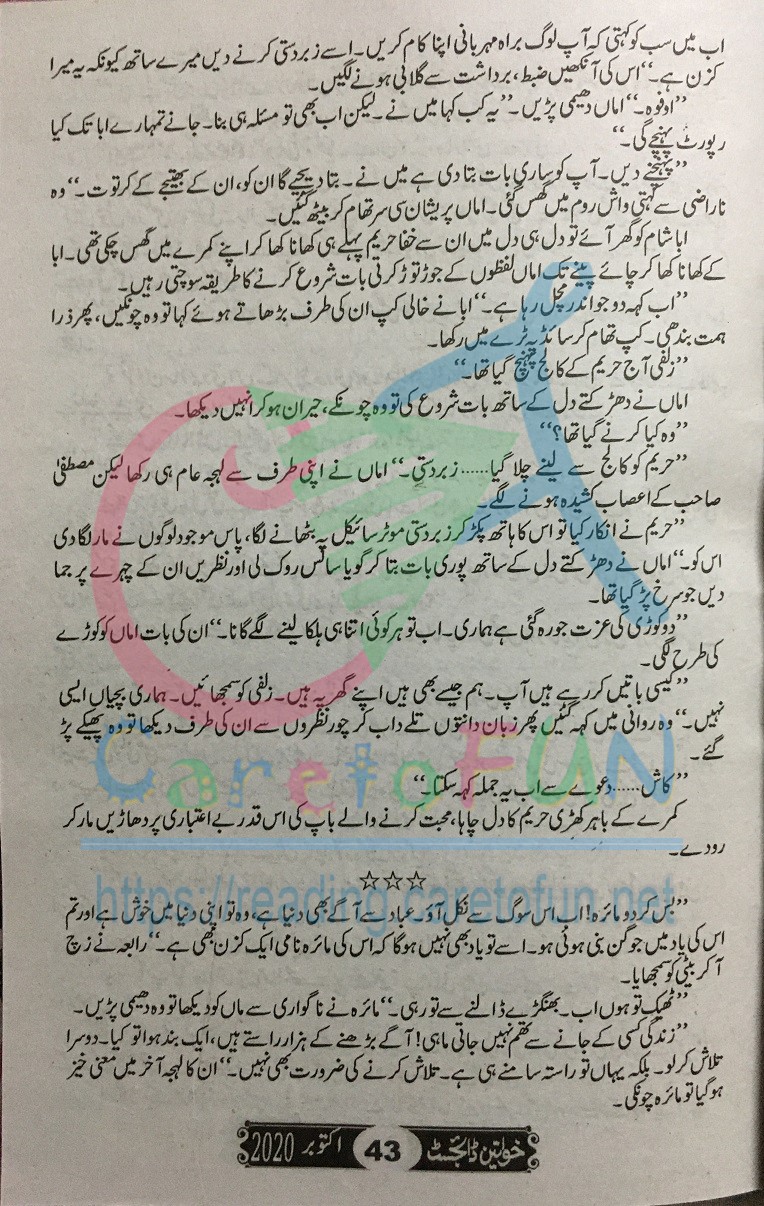 اب میں سب کو کہتی کہ آپ لوگ براہ مہربانی اپنا کام کریں۔ اسے زبردستی کرنے دیں میرے ساتھ کیونکہ یہ میرا
کزن ہے۔‘‘ اس کی آنکھیں ضبط، برداشت سے گلابی ہونے لگیں۔
’’اوفوہ۔‘‘ اماں دھیمی پڑیں۔ ’’یہ کب کہا میں نے۔ لیکن اب بھی تو مسئلہ ہی بنا۔ جانے تمہارے ابا تک کیا
رپورٹ پہنچے گی۔‘‘
’’پہنچنے دیں۔ آپ کو ساری بات بتا دی ہے میں نے۔ بتا دیجیے گا ان کو، ان کے بھتیجے کے کرتوت۔‘‘ وہ
ناراضی سے کہتی واش روم میں گھس گئی۔ اماں پریشان سی سر تھام کر بیٹھ گئیں۔
ابا شام کو گھر آئے تو دل ہی دل میں ان سے خفا حریم پہلے ہی کھانا کھا کر اپنے کمرے میں گھس چکی تھی۔ ابا
کے کھانا کھا کر چائے پینے تک اماں لفظوں کے جوڑ توڑ کرتی بات شروع کرنے کا طریقہ سوچتی رہیں۔
’’اب کہہ دو جو اندر مچل رہا ہے۔‘‘ ابا نے خالی کپ ان کی طرف بڑھاتے ہوئے کہا تو وہ چونکیں، پھر ذرا
ہمت بندھی۔ کپ تھام کر سائڈ پہ ٹرے میں رکھا۔
’’زلفی آج حریم کے کالج پہنچ گیا تھا۔‘‘
اماں نے دھڑکتے دل کے ساتھ بات شروع کی تو وہ چونکے، حیران ہو کر انہیں دیکھا۔
’’وہ کیا کرنے گیا تھا؟‘‘
’’حریم کو کالج سے لینے چلا گیا...... زبردستی۔‘‘ اماں نے اپنی طرف سے لہجہ عام ہی رکھا لیکن مصطفیٰ
صاحب کے اعصاب کشیدہ ہونے لگے۔
’’حریم نے انکار کیا تو اس کا ہاتھ پکڑ کر زبردستی موٹر سائیکل پہ بٹھانے لگا، پاس موجود لوگوں نے مار لگا دی
اس کو۔‘‘ اماں نے دھڑکتے دل کے ساتھ پوری بات بتا کر گویا سانس روک لی اور نظریں ان کے چہرے پر جما
دیں جو سرخ پڑ گیا تھا۔
’’دو کوڑی کی عزت جو رہ گئی ہے ہماری۔ اب تو ہر کوئی اتنا ہی ہلکا لینے لگے گا نا۔‘‘ ان کی بات اماں کو کوڑے
کی طرح لگی۔
’’کیسی باتیں کر رہے ہیں آپ۔ ہم جیسے بھی ہیں اپنے گھر پہ ہیں۔ زلفی کو سمجھائیں۔ ہماری بچیاں ایسی
نہیں۔‘‘ وہ روانی میں کہہ گئیں پھر زبان دانتوں تلے داب کر چور نظروں سے ان کی طرف دیکھا تو وہ پھیکے پڑ
گئے۔
’’کاش...... دعوے سے اب یہ جملہ کہہ سکتا۔‘‘
کمرے کے باہر کھڑی حریم کا دل چاہا، محبت کرنے والے باپ کی اس قدر بے اعتباری پر دھاڑیں مار کر
رو دے۔
CaretoFUN
☆☆☆
https://reading.caretofun.net
’’بس کر دو مائرہ! اب اس سوگ سے نکل آؤ۔ عباد سے آگے بھی دنیا ہے، وہ تو اپنی دنیا میں خوش ہے اور تم
اس کی یاد میں جوگن بنی ہوئی ہو۔ اسے تو یاد بھی نہیں ہو گا کہ اس کی مائرہ نامی ایک کزن بھی ہے۔‘‘ رابعہ نے زچ
آ کر بیٹی کو سمجھایا۔
’’ٹھیک تو ہوں اب۔ بھنگڑے ڈالنے سے تو رہی۔‘‘ مائرہ نے ناگواری سے ماں کو دیکھا تو وہ دھیمی پڑیں۔
’’زندگی کسی کے جانے سے تھم نہیں جاتی ماہی! آگے بڑھنے کے ہزار راستے ہیں، ایک بند ہوا تو کیا۔ دوسرا
تلاش کر لو۔ بلکہ یہاں تو راستہ سامنے ہی ہے۔ تلاش کرنے کی ضرورت بھی نہیں۔‘‘ ان کا لہجہ آخر میں معنی خیز
ہو گیا تو مائرہ چونکی۔
خواتین ڈائجسٹ 43 اکتوبر 2020